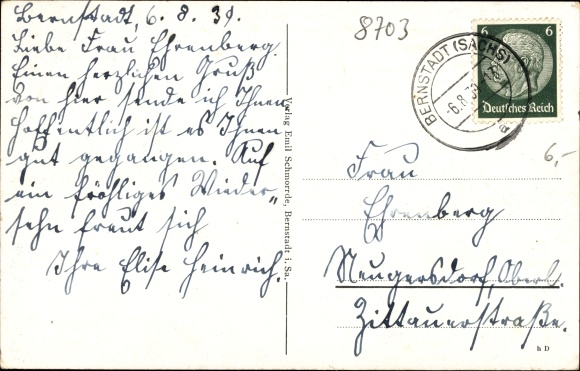 Bernstadt, 6. 8. 39.
Liebe Frau Ehrenberg.
Einen herzlichen Gruß
von hier sende ich Ihnen
Hoffentlich ist es Ihnen
gut gegangen. Auf
ein fröhliges Wieder„
sehn freut sich
Ihre Elise Heinrich.
Verlag Emil Schmorrde, Bernstadt i. Sa.
8703
BERNSTADT (SACHS)
6.8.
a
6 6
Deutsches Reich
6,-
Frau
Ehrenberg
Neugersdorf, Oberl.
Zittauerstraße.
h D